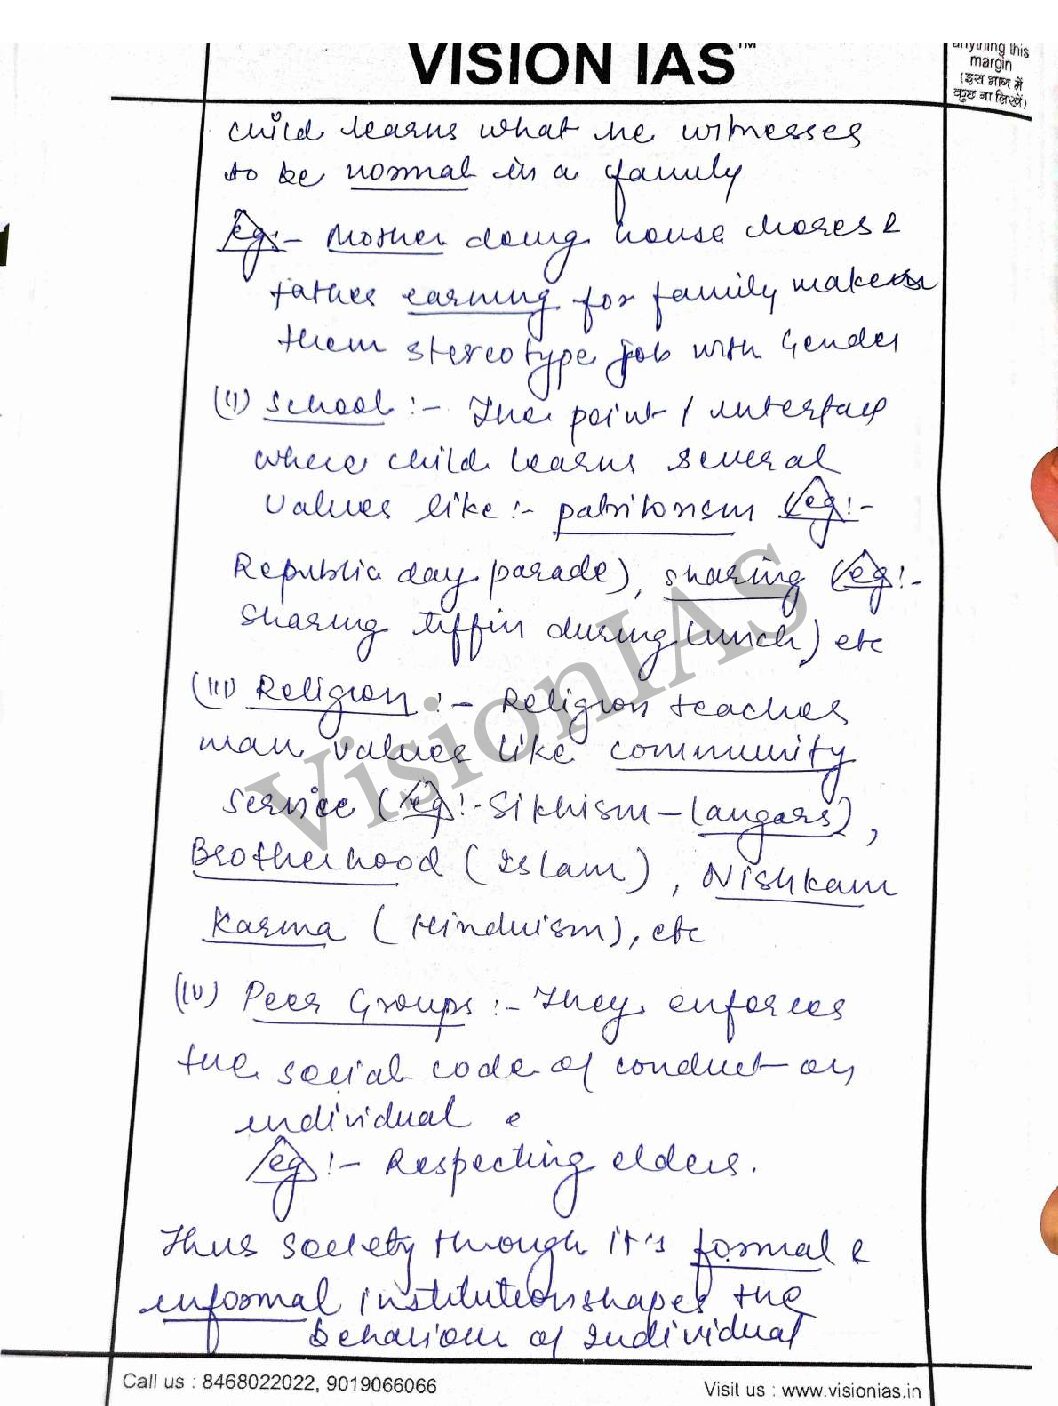 VISION IAS™
anything this
margin
(इस भाग में
कुछ ना लिखें)
child learns what he witnesses
to be normal in a family
eg:- Mother doing house chores &
father earning for family makes
them stereotype job with Gender
(ii) School :- The point / interface
where child learns several
values like :- patriotism (eg:-
Republic day parade), sharing (eg:-
sharing tiffin during lunch) etc
(iii) Religion :- Religion teaches
man values like community
service (eg:- Sikhism - Langars),
Brotherhood (Islam), Nishkam
Karma (Hinduism), etc
(iv) Peer Groups :- They enforces
the social code of conduct on
individual.
eg:- Respecting elders.
Thus society through it's formal &
informal institution shapes the
Behaviour of Individual
VisionIAS
Call us : 8468022022, 9019066066
Visit us : www.visionias.in